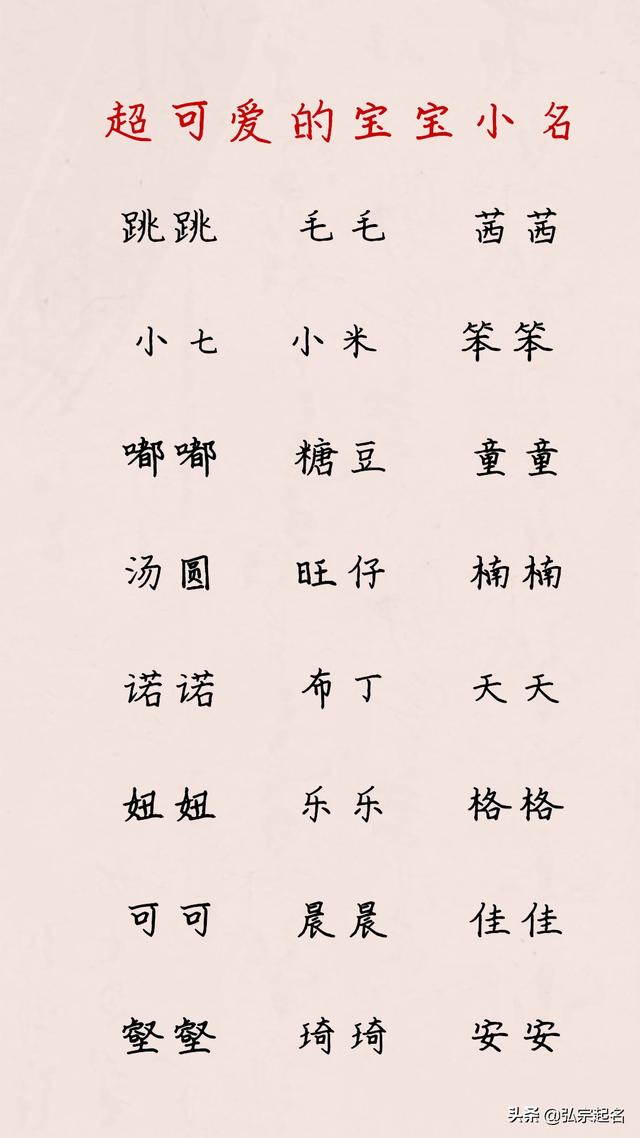 超可爱的宝宝小名
跳跳 毛毛 茜茜
小七 小米 笨笨
嘟嘟 糖豆 童童
汤圆 旺仔 楠楠
诺诺 布丁 天天
妞妞 乐乐 格格
可可 晨晨 佳佳
壑壑 琦琦 安安
头条 @弘宗起名